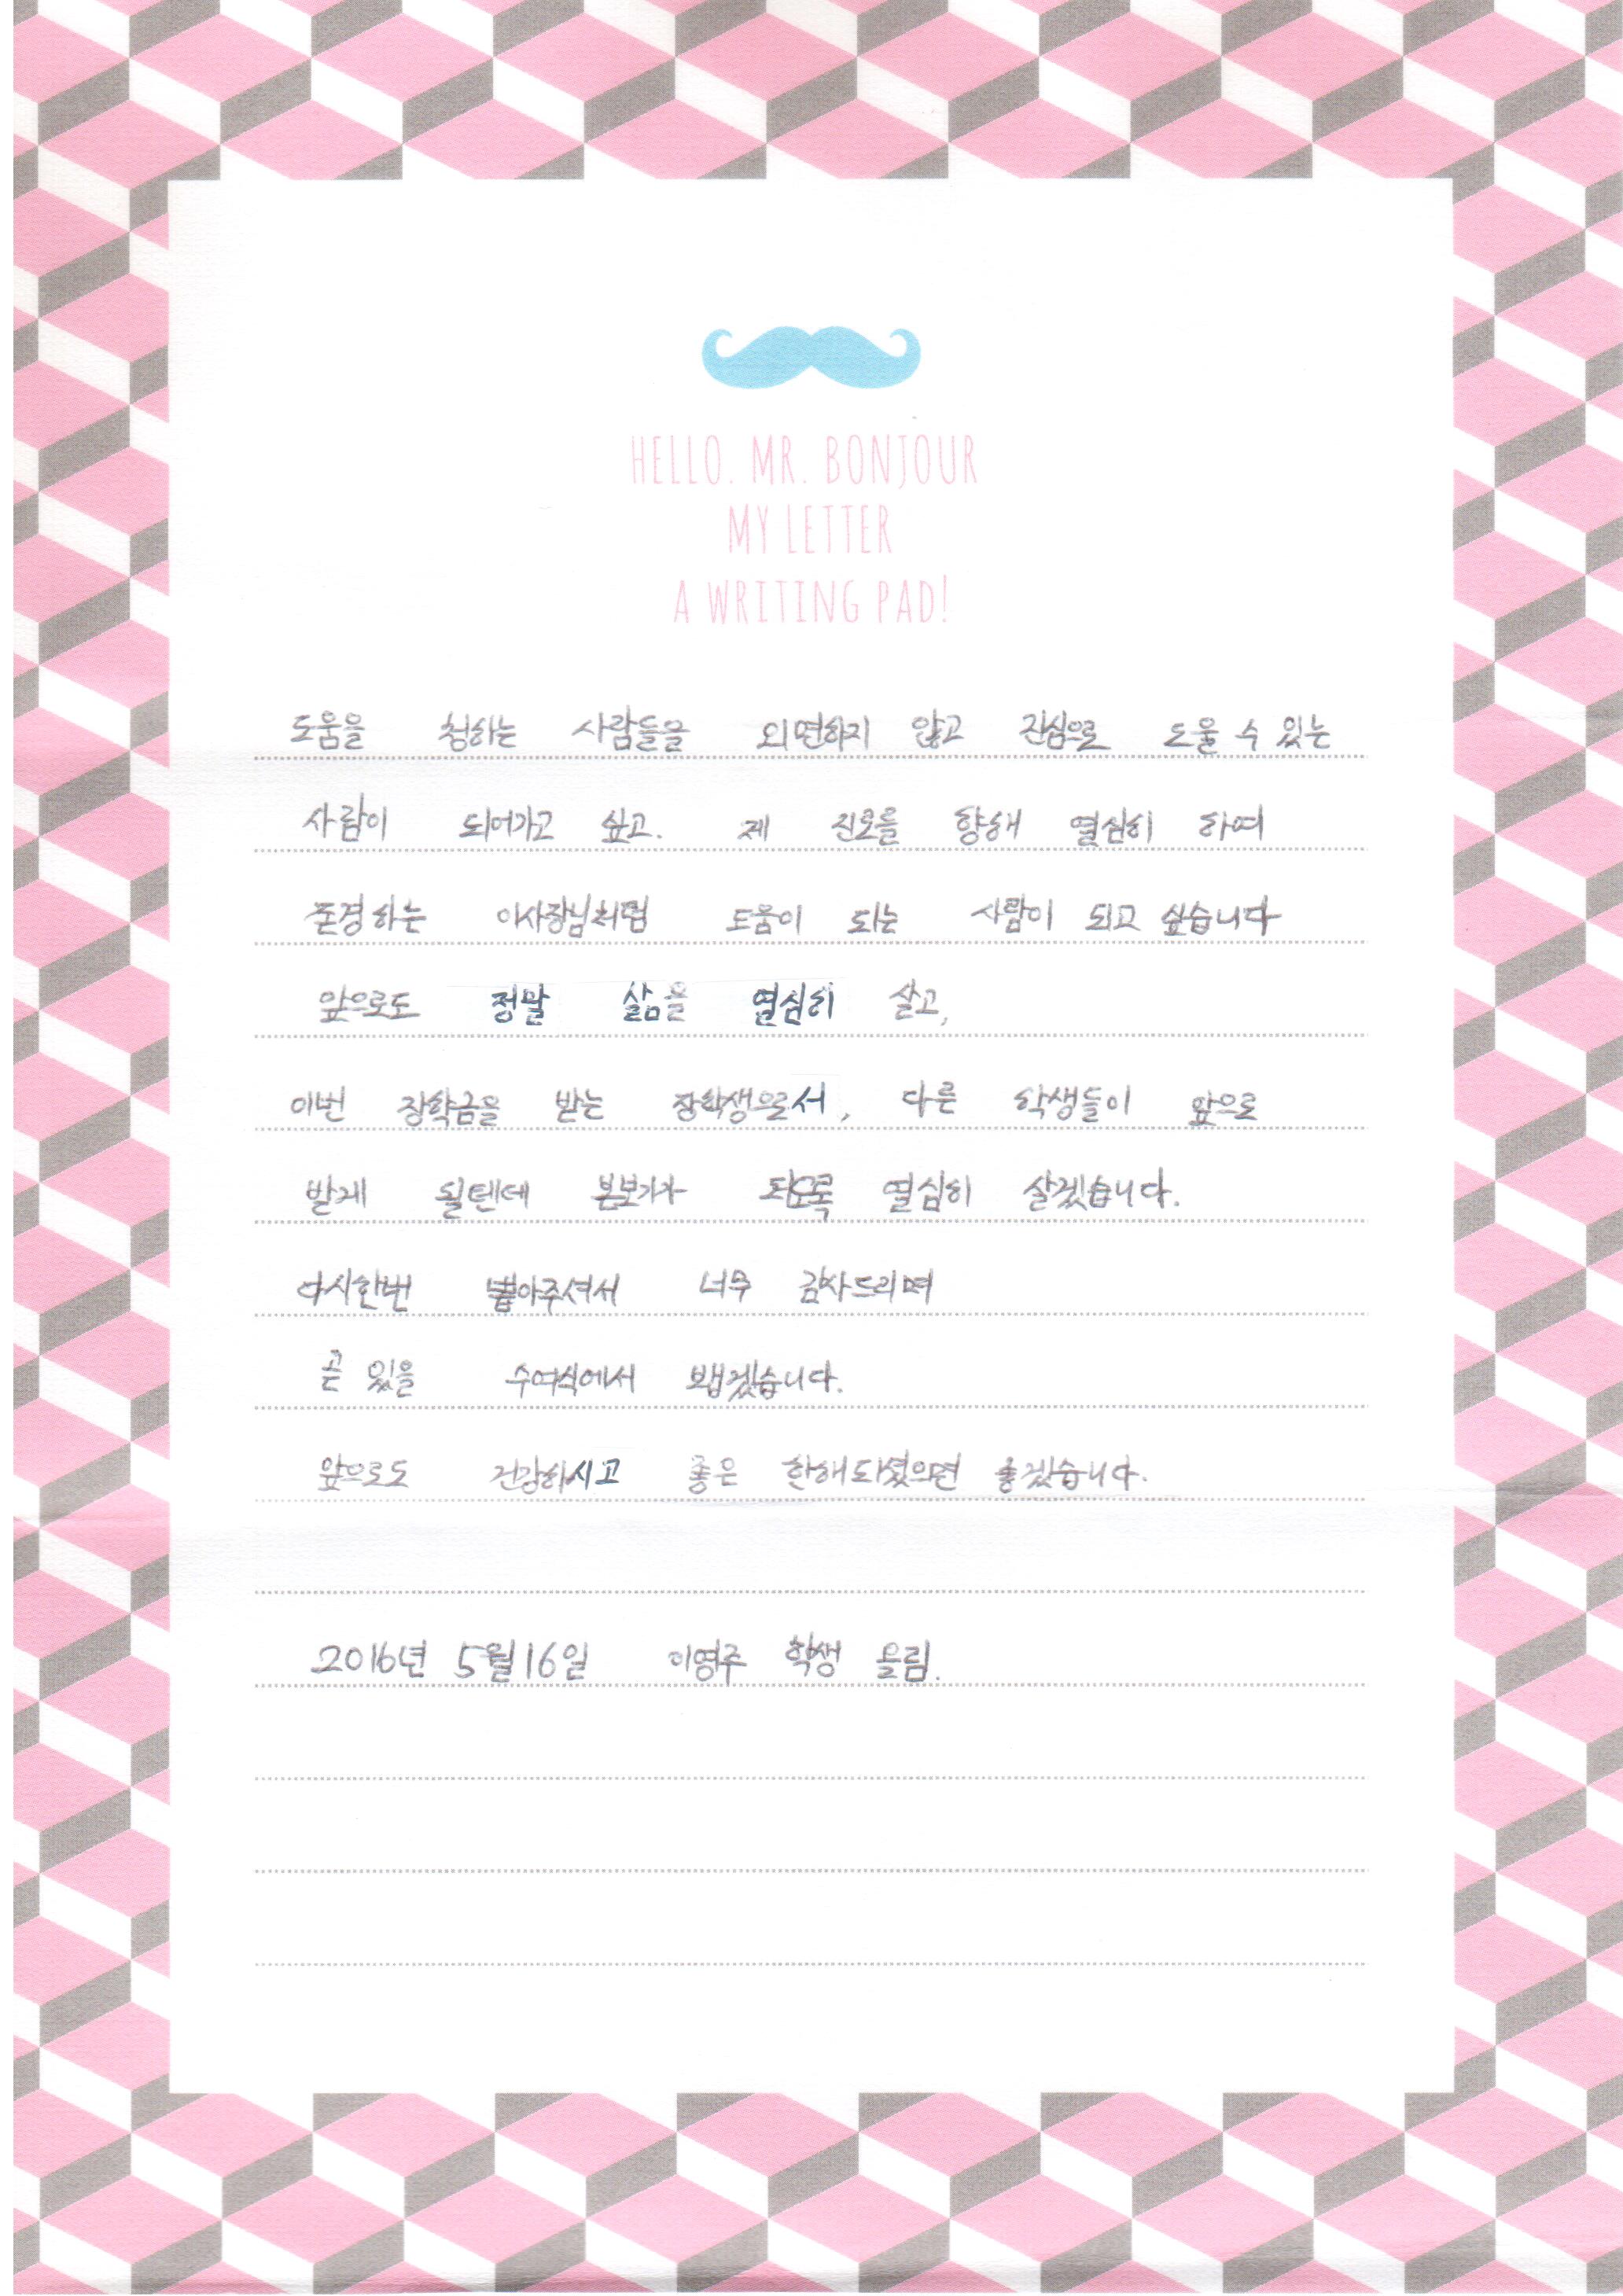 HELLO. MR. BONJOUR
MY LETTER
A WRITING PAD!
도움을 청하는 사람들을 외면하지 않고 진심으로 도울 수 있는
사람이 되어가고 싶고. 제 진로를 향해 열심히 하여
존경하는 이사장님처럼 도움이 되는 사람이 되고 싶습니다
앞으로도 정말 삶을 열심히 살고,
이번 장학금을 받는 장학생으로서, 다른 학생들이 앞으로
받게 될텐데 본보기가 되도록 열심히 살겠습니다.
다시한번 뽑아주셔서 너무 감사드리며
곧 있을 수여식에서 뵙겠습니다.
앞으로도 건강하시고 좋은 한해되셨으면 좋겠습니다.
2016년 5월 16일 이영주 학생 올림.